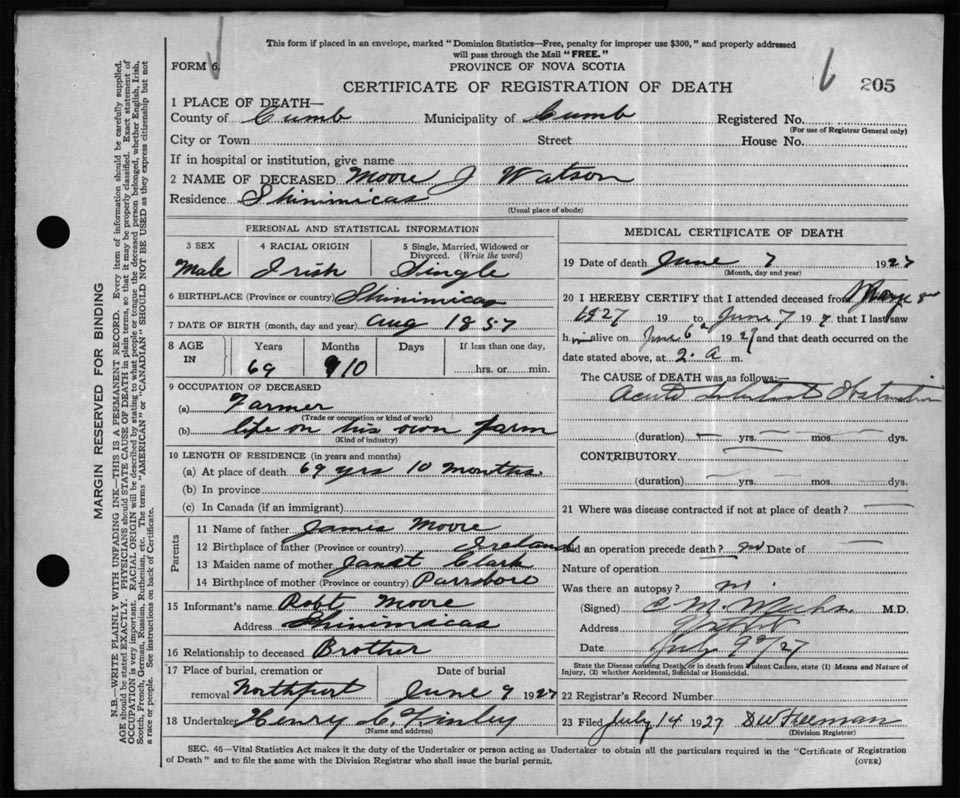 This form if placed in an envelope, marked "Dominion Statistics—Free, penalty for improper use $300," and properly addressed
will pass through the Mail "FREE."
FORM 6.
PROVINCE OF NOVA SCOTIA
6
205
CERTIFICATE OF REGISTRATION OF DEATH
1 PLACE OF DEATH—
County of Cumb Municipality of Cumb Registered No.
(For use of Registrar General only)
City or Town Street House No.
If in hospital or institution, give name
2 NAME OF DECEASED Moore J Watson
Residence Shinimicas
(Usual place of abode)
PERSONAL AND STATISTICAL INFORMATION
3 SEX 4 RACIAL ORIGIN 5 Single, Married, Widowed or Divorced. (Write the word)
Male Irish Single
6 BIRTHPLACE (Province or country) Shinimicas
7 DATE OF BIRTH (month, day and year) Aug 1857
8 AGE IN Years Months Days If less than one day,
69 10 hrs. or min.
9 OCCUPATION OF DECEASED
(a) Farmer
(Trade or occupation or kind of work)
(b) life on his own farm
(Kind of industry)
10 LENGTH OF RESIDENCE (in years and months)
(a) At place of death 69 yrs 10 months.
(b) In province
(c) In Canada (if an immigrant)
Parents
11 Name of father James Moore
12 Birthplace of father (Province or country) Ireland
13 Maiden name of mother Janet Clark
14 Birthplace of mother (Province or country) Parrsboro
15 Informant's name Robt Moore
Address Shinimicas
16 Relationship to deceased Brother
17 Place of burial, cremation or removal Northport Date of burial June 9 1927
18 Undertaker Henry C. Finley
(Name and address)
MEDICAL CERTIFICATE OF DEATH
19 Date of death June 7 1927
(Month, day and year)
20 I HEREBY CERTIFY that I attended deceased from
1927 19 to June 7 19 7 that I last saw
h m alive on June 6 1927 and that death occurred on the
date stated above, at 2. a m.
The CAUSE of DEATH was as follows:—
Acute Obstruction
(duration) yrs. mos. dys.
CONTRIBUTORY
(duration) yrs. mos. dys.
21 Where was disease contracted if not at place of death?
Did an operation precede death? no Date of
Nature of operation
Was there an autopsy?
(Signed) E M M.D.
Address
Date July 9 27
State the Disease causing Death, or in death from Violent Causes, state (1) Means and Nature of
Injury, (2) whether Accidental, Suicidal or Homicidal.
22 Registrar's Record Number
23 Filed July 14 1927 D W Freeman
(Division Registrar)
SEC. 46—Vital Statistics Act makes it the duty of the Undertaker or person acting as Undertaker to obtain all the particulars required in the "Certificate of Registration
of Death" and to file the same with the Division Registrar who shall issue the burial permit.
(OVER)
MARGIN RESERVED FOR BINDING
N.B.—WRITE PLAINLY WITH UNFADING INK—THIS IS A PERMANENT RECORD. Every item of information should be carefully supplied.
AGE should be stated EXACTLY. PHYSICIANS should STATE CAUSE OF DEATH in plain terms, so that it may be properly classified. Exact statement of
OCCUPATION is very important. RACIAL ORIGIN will be described by stating to what people or tongue the deceased person belonged, whether English, Irish,
Scotch, French, German, Russian, Ruthenian, etc. The terms "AMERICAN" or "CANADIAN" SHOULD NOT BE USED as they express citizenship but not
a race or people. See instructions on back of Certificate.